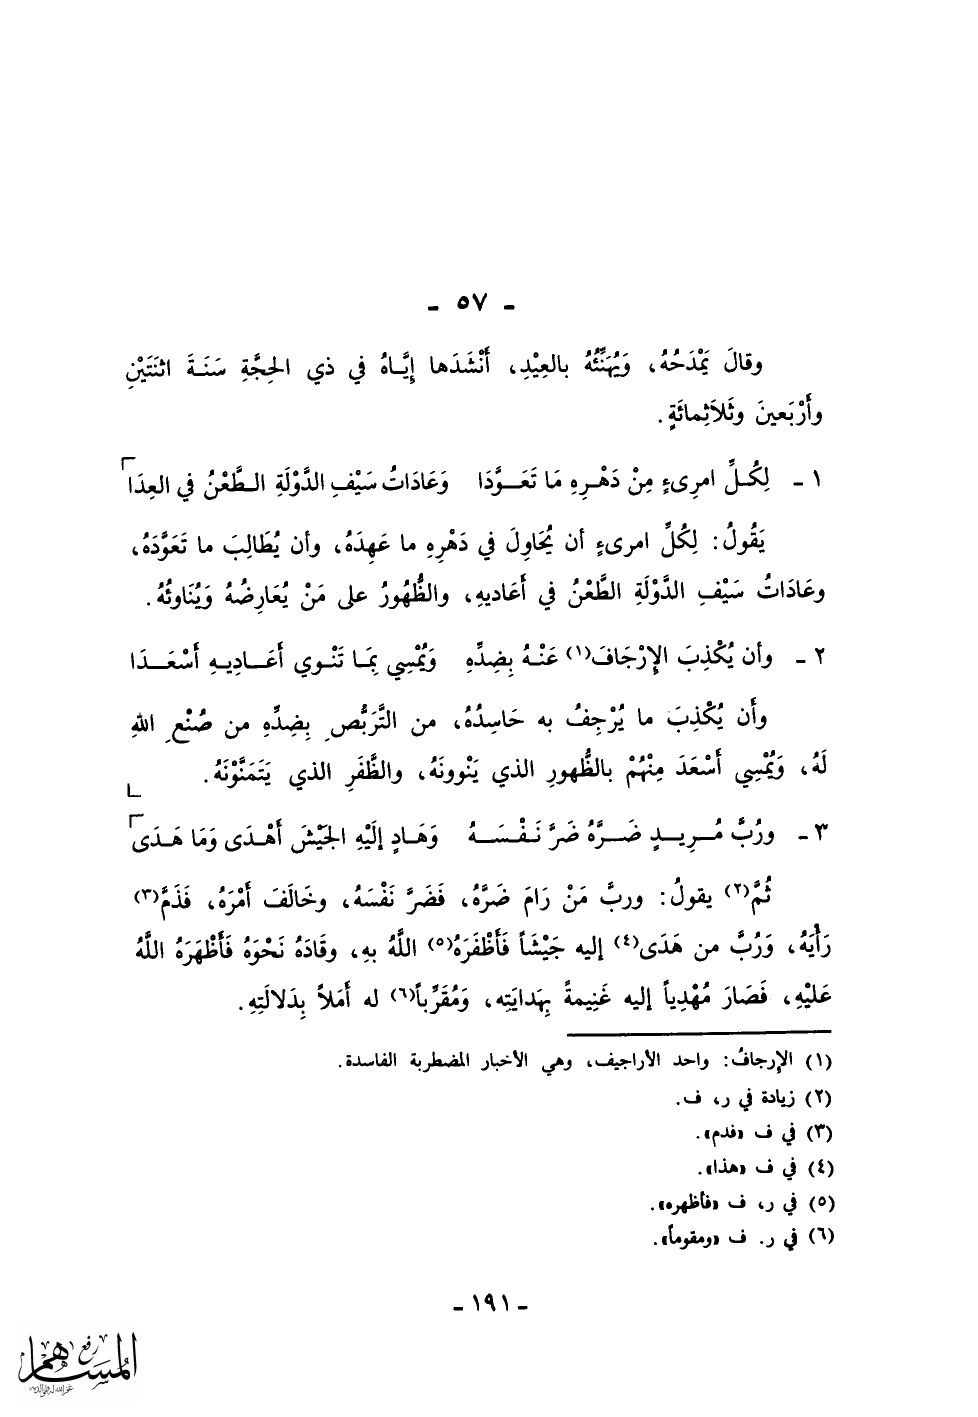 ـ ٥٧ ـ
وقالَ يَمْدَحُهُ، وَيُهَنِّئُهُ بالعِيْدِ، أَنْشَدَها إِيَّـاهُ في ذي الحِجَّةِ سَنَـةَ اثنَتَيْنِ
وأَرْبَعينَ وثَلاَثِمائَةٍ.
١ ـ لِكُـلِّ امرِىءٍ مِنْ دَهْـرِهِ مَا تَعَـوَّدَا وَعَادَاتُ سَيْفِ الدَّوْلَةِ الطَّعْنُ في العِدَا
يَقُولُ: لِكُلِّ امرىءٍ أن يُحَاوِلَ في دَهْرِهِ ما عَهِدَهُ، وأن يُطَالِبَ ما تَعَوَّدَهُ،
وعَادَاتُ سَيْفِ الدَّوْلَةِ الطَّعْنُ في أَعَاديهِ، والظُّهُورُ على مَنْ يُعَارِضُهُ وَيُنَاوئُهُ.
٢ ـ وأن يُكْذِبَ الإِرْجَافَ(١) عَنْـهُ بِضِدِّهِ وَيُمْسِي بِمَـا تَنْـوي أَعَـادِيـهِ أَسْعَـدَا
وأَن يُكْذِبَ ما يُرْجِفُ به حَاسِدُهُ، من التَّرَبُّصِ بِضِدِّهِ من صُنْعِ اللهِ
لَهُ، وَيُمْسِي أَسْعَدَ مِنْهُمْ بالظُّهورِ الذي يَنْوونَهُ، والظَّفَرِ الذي يَتَمَنَّوْنَهُ.
٣ ـ ورُبَّ مُـرِيـدٍ ضَـرَّهُ ضَرَّ نَـفْـسَـهُ وَهَـادٍ إِلَيْهِ الجَيْشَ أَهْـدَى وَمَا هَـدَى
ثُمَّ(٢) يقولُ: وربَّ مَنْ رَامَ ضَرَّهُ، فَضَرَّ نَفْسَهُ، وخَالَفَ أَمْرَهُ، فَذَمَّ(٣)
رَأْيَهُ، وَرُبَّ من هَدَى(٤) إليه جَيْشَاً فَأَظْفَرَهُ(٥) اللَّهُ بهِ، وقَادَهُ نَحْوَهُ فَأَظْهَرَهُ اللَّهُ
عَلَيْهِ، فَصَارَ مُهْدِياً إليه غَنِيمةً بِهَدايَتِه، وَمُقَرِّباً(٦) له أَمَلاً بِدَلالَتِهِ.
(١) الإِرجافُ: واحد الأراجيف، وهي الأخبار المضطربة الفاسدة.
(٢) زيادة في ر، ف.
(٣) في ف «فدم».
(٤) في ف «هذا».
(٥) في ر، ف «فأظهره».
(٦) في ر. ف «ومقوماً».
ـ ١٩١ ـ
المساهم
رفع